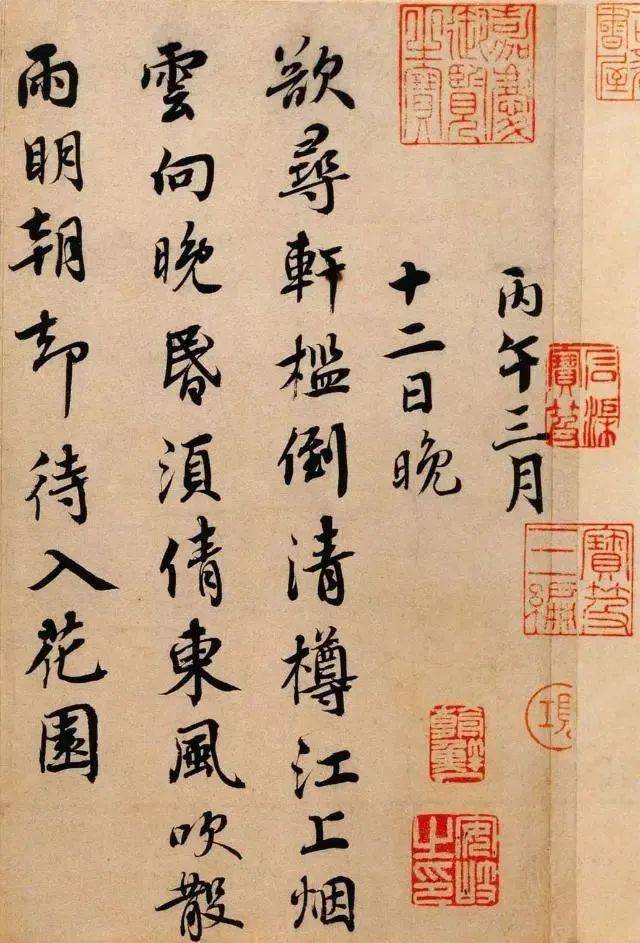 石渠寶笈
寶笈三編
丙午三月
嘉慶御覽之寶
十二日晚
欲尋軒檻倒清樽江上烟
雲向晚昬須倩東風吹散
雨明朝却待入花園